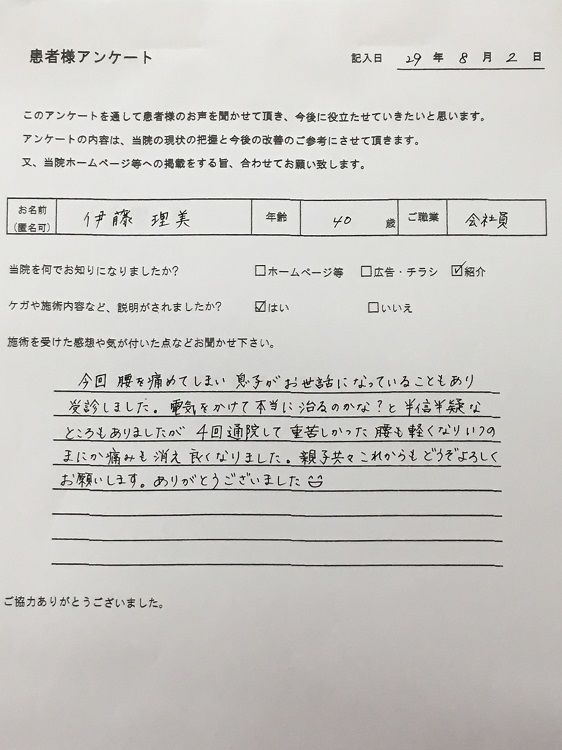 患者様アンケート
記入日 29 年 8 月 2 日
このアンケートを通して患者様のお声を聞かせて頂き、今後に役立たせていきたいと思います。
アンケートの内容は、当院の現状の把握と今後の改善のご参考にさせて頂きます。
又、当院ホームページ等への掲載をする旨、合わせてお願い致します。
お名前(匿名可) 伊藤 理美 年齢 40 歳 ご職業 会社員
当院を何でお知りになりましたか? □ホームページ等 □広告・チラシ ☑紹介
ケガや施術内容など、説明がされましたか? ☑はい □いいえ
施術を受けた感想や気が付いた点などお聞かせ下さい。
今回 腰を痛めてしまい 息子がお世話になっていることもあり
受診しました。電気をかけて本当に治るのかな?と半信半疑な
ところもありましたが 4回通院して重苦しかった腰も軽くなりいつの
まにか痛みも消え良くなりました。親子共々これからもどうぞよろしく
お願いします。ありがとうございました
ご協力ありがとうございました。